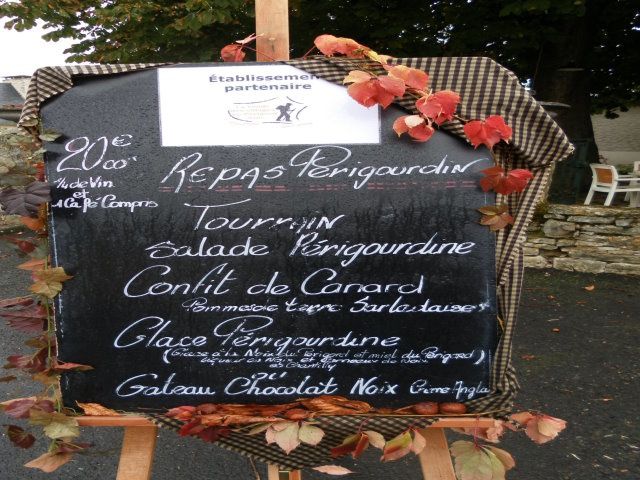 Établissement
partenaire
20€00
1/4 de Vin
et
1 Café Compris
Repas Périgourdin
Tourrain
Salade Périgourdine
Confit de Canard
Pommes de terre Sarladaises
Glace Périgourdine
(Glace à la Noix du Périgord et miel du Périgord)
de Noix et Cerneaux de Noix
et Chantilly
ou
Gateau Chocolat Noix Crème Angla